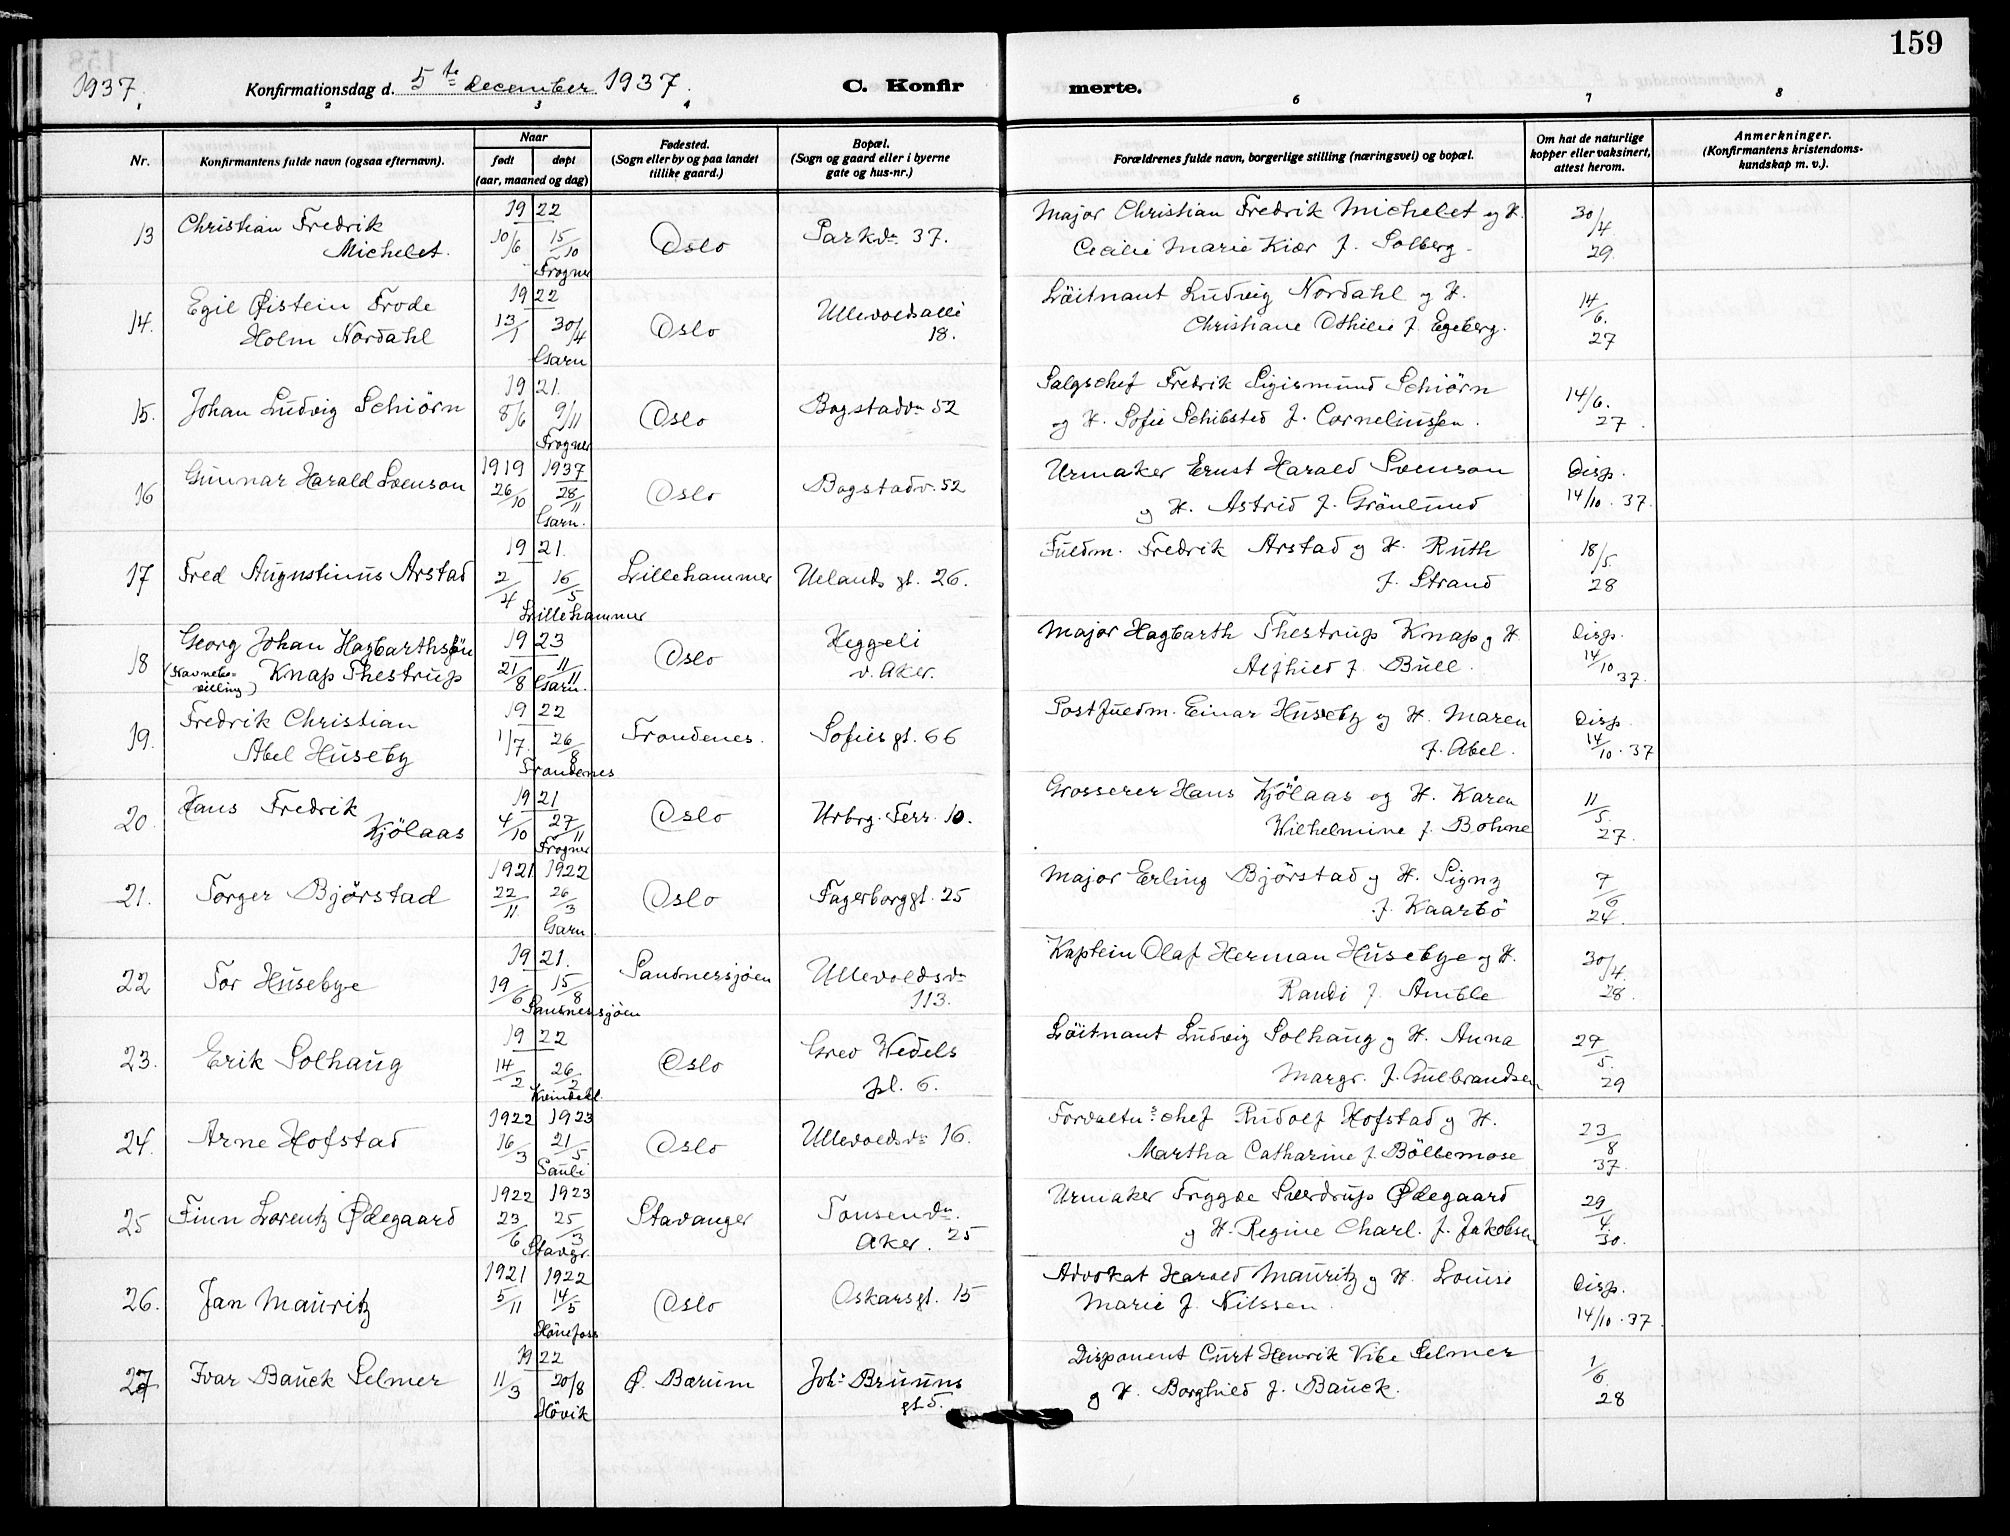 159
1937.
Konfirmationsdag d. 5te december 1937.
C. Konfirmerte.
1 2 3 4 6 7 8
Nr.
Konfirmantens fulde navn (ogsaa efternavn).
Naar
født
døpt
(aar, maaned og dag)
Fødested.
(Sogn eller by og paa landet
tillike gaard.)
Bopæl.
(Sogn og gaard eller i byerne
gate og hus-nr.)
Forældrenes fulde navn, borgerlige stilling (næringsvei) og bopæl.
Om hat de naturlige
kopper eller vaksinert,
attest herom.
Anmerkninger.
(Konfirmantens kristendoms-
kundskap m. v.).
13 Christian Fredrik Michelet. 1922 10/6 15/10 Frogner Oslo Parkvn 37. Major Christian Fredrik Michelet og H. Cecilie Marie Kiær f. Solberg. 30/4 29.
14. Egil Øistein Frode Holm Nordahl 1922 13/1 30/4 Garn Oslo Ullevoldsalle 18. Löitnant Ludvig Nordahl og H. Christiane Othilie f. Egeberg. 14/6. 27
15. Johan Ludvig Schiörn 1921. 8/6 9/11 Frogner Oslo Bogstadvn 52 Salgschef Fredrik Sigismund Schiörn og H. Sofie Schibsted f. Corneliussen. 14/6. 27.
16 Gunnar Harald Svenson 1919 26/10 1937 28/11 Garn. Oslo Bogstadv. 52 Urmaker Ernst Harald Svenson og H. Astrid f. Grönlund Disp. 14/10. 37.
17 Fred Augustinus Arstad 1921. 2/4 16/5 Lillehammer Lillehammer Uelands gt. 26. Fuldm. Fredrik Arstad og H. Ruth f. Strand 18/5. 28
18 Georg Johan Hagbarthsön (Navnebevilling) Knap Thestrup 1923 21/8 11/11 Garn. Oslo Heggeli v. Aker. Major Hagbarth Thestrup Knap og H. Alfhild f. Bull. Disp. 14/10 37.
19. Fredrik Christian Abel Huseby 1922 1/7. 26/8 Trondenes Trondenes. Sofies gt. 66 Postfuldm. Einar Huseby og H. Maren f. Abel. Disp. 14/10. 37
20. Hans Fredrik Kjölaas 1921 4/10 27/11 Frogner Oslo Urbrg. Terr. 10. Grosserer Hans Kjölaas og H. Karen Wilhelmine f. Bohne 11/5. 27.
21. Torger Björstad 1921 22/11 1922 26/3 Garn Oslo Fagerborggt. 25 Major Erling Björstad og H. Signy f. Kaarbö 7/6 24.
22 Tor Husebye 1921. 19/6 15/8 Sandnessjöen Sandnessjöen Ullevoldsvn 113. Kaptein Olaf Herman Husebye og H. Randi f. Amble 30/4. 28.
23. Erik Solhaug 1922 14/2 26/2 Oslo Grev Wedels pl. 6. Löitnant Ludvig Solhaug og H. Anna Margr. f. Gulbrandsen 29/5. 29
24. Arne Hofstad 1922 16/3 1923 21/5 Pauli Oslo Ullevoldsvn 16. Forvaltn.s chef Rudolf Hofstad og H. Martha Catharine f. Böllemose 23/8 37.
25 Finn Lorentz Ødegaard 1922 23/6 1923 25/3 Stavgr. Stavanger Tonsenvn. Aker. 25 Urmaker Tryggve Sverdrup Ødegaard og H. Regine Charl. f. Jakobsen 29/4. 30.
26. Jan Mauritz 1921 5/11 1922 14/5 Hönefoss Oslo Oskarsgt. 15 Advokat Harald Mauritz og H. Louise Marie f. Nilssen. Disp. 14/10. 37.
27 Ivar Bauck Selmer 1922 11/3 20/8 Hövik Ø. Bærum Johs Bruuns gt 5. Disponent Curt Henrik Vibe Selmer og H. Borghild f. Bauck. 1/6. 28